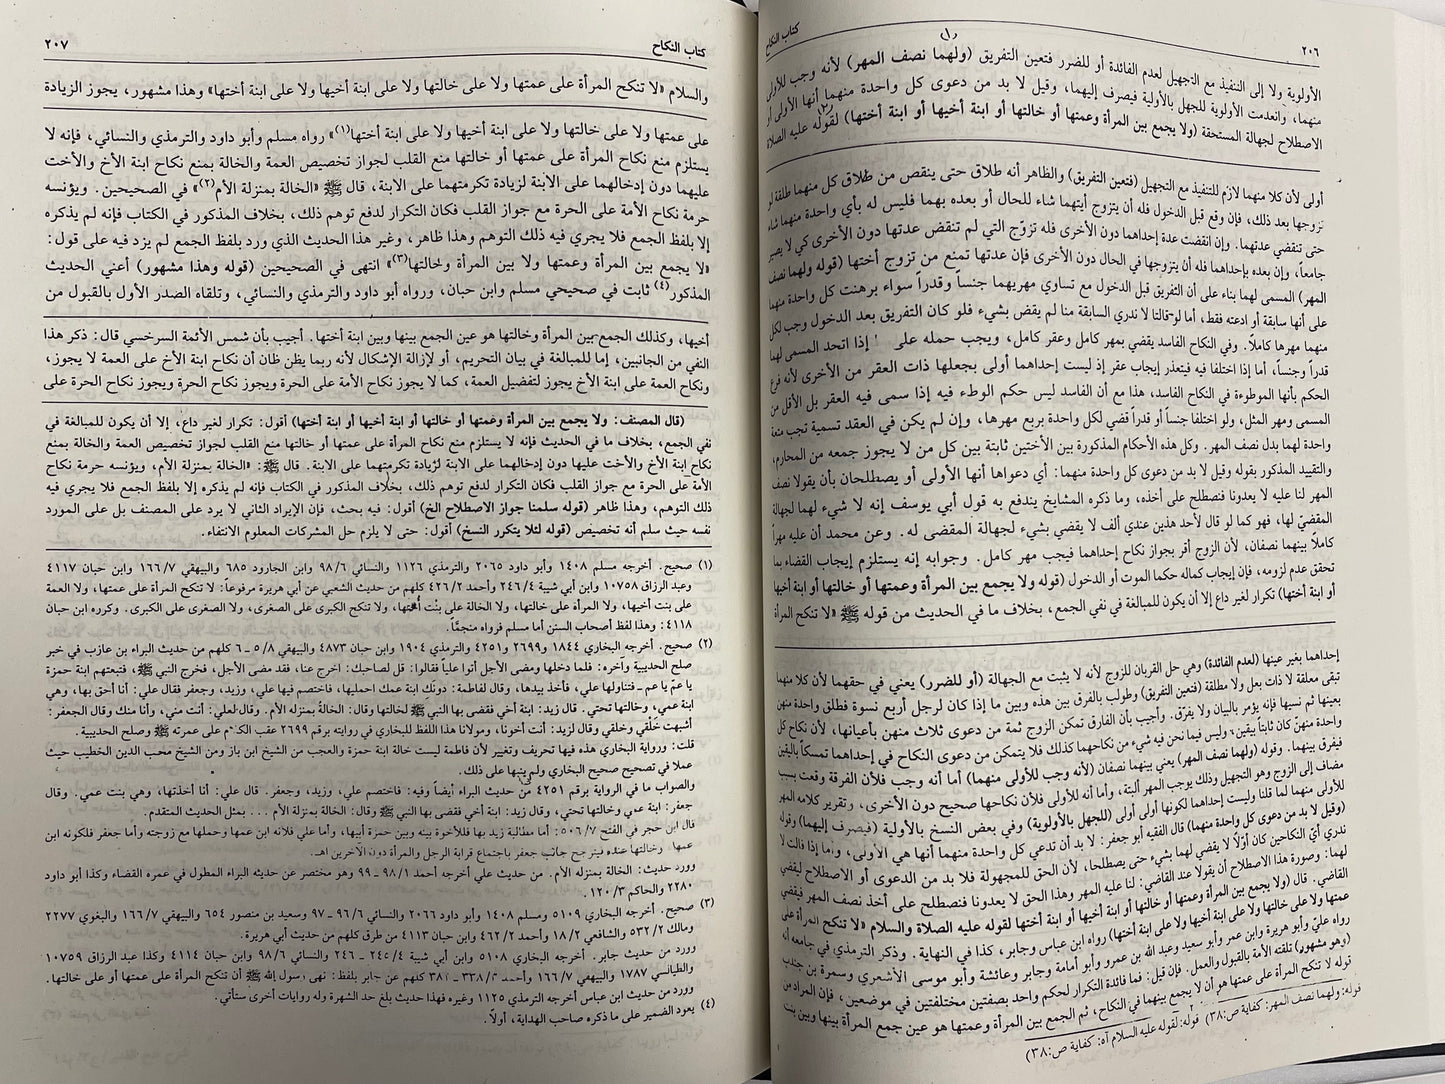 ٢٠٦
كتاب النكاح
الأولوية ولا إلى التنفيذ مع التجهيل لعدم الفائدة أو للضرر فتعين التفريق (ولهما نصف المهر) لأنه وجب للأولى
منهما، وانعدمت الأولوية للجهل بالأولية فيصرف إليهما، وقيل لا بد من دعوى كل واحدة منهما أنها الأولى أو
الاصطلاح لجهالة المستحقة (ولا يجمع بين المرأة وعمتها أو خالتها أو ابنة أخيها أو ابنة أختها) لقوله عليه الصلاة
أولى لأن كلا منهما لازم للتنفيذ مع التجهيل (فتعين التفريق) والظاهر أنه طلاق حتى ينقص من طلاق كل منهما طلقة لو
تزوجها بعد ذلك، فإن وقع قبل الدخول فله أن يتزوج أيتهما شاء للحال أو بعده بهما فليس له بأي واحدة منهما شاء
حتى تنقضي عدتهما. وإن انقضت عدة إحداهما دون الأخرى فله تزوّج التي لم تنقض عدتها دون الأخرى كي لا يصير
جامعاً، وإن بعده بإحداهما فله أن يتزوجها في الحال دون الأخرى فإن عدتها تمنع من تزوج أختها (قوله ولهما نصف
المهر) المسمى لهما بناء على أن التفريق قبل الدخول مع تساوي مهريهما جنساً وقدراً سواء برهنت كل واحدة منهما
على أنها سابقة أو ادعته فقط، أما لو قالتا لا ندري السابقة منا لم يقض بشيء فلو كان التفريق بعد الدخول وجب لكل
منهما مهرها كاملاً. وفي النكاح الفاسد يقضي بمهر كامل وعقر كامل، ويجب حمله على إذا اتحد المسمى لهما
قدراً وجنساً، أما إذا اختلفا فيه فيتعذر إيجاب عقر إذ ليست إحداهما أولى بجعلها ذات العقر من الأخرى لأنه فرع
الحكم بأنها الموطوءة في النكاح الفاسد، هذا مع أن الفاسد ليس حكم الوطء فيه إذا سمى فيه العقر بل الأقل من
المسمى ومهر المثل، ولو اختلفا جنساً أو قدراً قضى لكل واحدة بربع مهرها، وإن لم يكن في العقد تسمية تجب متعة
واحدة لهما بدل نصف المهر. وكل هذه الأحكام المذكورة بين الأختين ثابتة بين كل من لا يجوز جمعه من المحارم،
والتقييد المذكور بقوله وقيل لا بد من دعوى كل واحدة منهما: أي دعواها أنها الأولى أو يصطلحان بأن يقولا نصف
المهر لنا عليه لا يعدونا فنصطلح على أخذه، وما ذكره المشايخ يندفع به قول أبي يوسف إنه لا شيء لهما لجهالة
المقضيّ لها، فهو كما لو قال لأحد هذين عندي ألف لا يقضي بشيء لجهالة المقضى له. وعن محمد أن عليه مهراً
كاملاً بينهما نصفان، لأن الزوج أقر بجواز نكاح إحداهما فيجب مهر كامل. وجوابه إنه يستلزم إيجاب القضاء بما
تحقق عدم لزومه، فإن إيجاب كماله حكما الموت أو الدخول (قوله ولا يجمع بين المرأة وعمتها أو خالتها أو ابنة أخيها
أو ابنة أختها) تكرار لغير داع إلا أن يكون للمبالغة في نفي الجمع، بخلاف ما في الحديث من قوله ﷺ «لا تنكح المرأة
إحداهما بغير عينها (لعدم الفائدة) وهي حل القربان للزوج لأنه لا يثبت مع الجهالة (أو للضرر) يعني في حقهما لأن كلا منهما
تبقى معلقة لا ذات بعل ولا مطلقة (فتعين التفريق) وطولب بالفرق بين هذه وبين ما إذا كان لرجل أربع نسوة فطلق واحدة منهن
بعينها ثم نسيها فإنه يؤمر بالبيان ولا يفرّق. وأجيب بأن الفارق تمكن الزوج ثمة من دعوى ثلاث منهن بأعيانها، لأن نكاح كل
واحدة منهنّ كان ثابتاً بيقين، وليس فيما نحن فيه شيء من نكاحهما كذلك فلا يتمكن من دعوى النكاح في إحداهما تمسكاً باليقين
فيفرق بينهما. وقوله (ولهما نصف المهر) يعني بينهما نصفان (لأنه وجب للأولى منهما) أما أنه وجب فلأن الفرقة وقعت بسبب
مضاف إلى الزوج وهو التجهيل وذلك يوجب المهر ألبتة، وأما أنه للأولى فلأن نكاحها صحيح دون الأخرى، وتقرير كلامه المهر
للأولى منهما لما قلنا وليست إحداهما لكونها أولى أولى (للجهل بالأولوية) وفي بعض النسخ بالأولية (فيصرف إليهما) وقوله
(وقيل لا بد من دعوى كل واحدة منهما) قال الفقيه أبو جعفر: لا بد أن تدعي كل واحدة منهما أنها هي الأولى، وأما إذا قالت لا
ندري أيّ النكاحين كان أوّلاً لا يقضي لهما بشيء حتى يصطلحا، لأن الحق للمجهولة فلا بد من الدعوى أو الاصطلاح ليقضي
لهما: وصورة هذا الاصطلاح أن يقولا عند القاضي: لنا عليه المهر وهذا الحق لا يعدونا فنصطلح على أخذ نصف المهر فيقضي
القاضي. قال (ولا يجمع بين المرأة وعمتها أو خالتها أو ابنة أخيها أو ابنة أختها لقوله عليه الصلاة والسلام «لا تنكح المرأة على
عمتها ولا على خالتها ولا على ابنة أخيها ولا على ابنة أختها) رواه ابن عباس وجابر، كذا في النهاية. وذكر الترمذي في جامعه أنه
رواه عليّ وأبو هريرة وابن عمر وأبو سعيد وعبد الله بن عمرو وأبو أمامة وجابر وعائشة وأبو موسى الأشعري وسمرة بن جندب
(وهو مشهور) تلقته الأمة بالقبول والعمل. فإن قيل: فما فائدة التكرار لحكم واحد بصفتين مختلفتين في موضعين، فإن المراد من
قوله لا تنكح المرأة على عمتها هو أن لا يجمع بينهما في النكاح، ثم الجمع بين المرأة وعمتها هو عين جمع المرأة بينها وبين بنت
قوله: ولهما نصف المهر: كفاية ص:٣٨) قوله: لقوله عليه السلام آه: كفاية ص:٣٨)
كتاب النكاح
٢٠٧
والسلام «لا تنكح المرأة على عمتها ولا على خالتها ولا على ابنة أخيها ولا على ابنة أختها» وهذا مشهور، يجوز الزيادة
على عمتها ولا على خالتها ولا على ابنة أخيها ولا على ابنة أختها(١)» رواه مسلم وأبو داود والترمذي والنسائي، فإنه لا
يستلزم منع نكاح المرأة على عمتها أو خالتها منع القلب لجواز تخصيص العمة والخالة بمنع نكاح ابنة الأخ والأخت
عليهما دون إدخالهما على الابنة لزيادة تكرمتهما على الابنة، قال ﷺ «الخالة بمنزلة الأم(٢)» في الصحيحين. ويؤنسه
حرمة نكاح الأمة على الحرة مع جواز القلب فكان التكرار لدفع توهم ذلك، بخلاف المذكور في الكتاب فإنه لم يذكره
إلا بلفظ الجمع فلا يجري فيه ذلك التوهم وهذا ظاهر، وغير هذا الحديث الذي ورد بلفظ الجمع لم يزد فيه على قول:
«لا يجمع بين المرأة وعمتها ولا بين المرأة وخالتها(٣)» انتهى في الصحيحين (قوله وهذا مشهور) أعني الحديث
المذكور(٤) ثابت في صحيحي مسلم وابن حبان، ورواه أبو داود والترمذي والنسائي، وتلقاه الصدر الأول بالقبول من
أخيها، وكذلك الجمع بين المرأة وخالتها هو عين الجمع بينها وبين ابنة أختها. أجيب بأن شمس الأئمة السرخسي قال: ذكر هذا
النفي من الجانبين، إما للمبالغة في بيان التحريم، أو لإزالة الإشكال لأنه ربما يظن ظان أن نكاح ابنة الأخ على العمة لا يجوز،
ونكاح العمة على ابنة الأخ يجوز لتفضيل العمة، كما لا يجوز نكاح الأمة على الحرة ويجوز نكاح الحرة ويجوز نكاح الحرة على
(قال المصنف: ولا يجمع بين المرأة وعمتها أو خالتها أو ابنة أخيها أو ابنة أختها) أقول: تكرار لغير داع، إلا أن يكون للمبالغة في
نفي الجمع، بخلاف ما في الحديث فإنه لا يستلزم منع نكاح المرأة على عمتها أو خالتها منع القلب لجواز تخصيص العمة والخالة بمنع
نكاح ابنة الأخ والأخت عليها دون إدخالهما على الابنة لزيادة تكرمتهما على الابنة. قال ﷺ: «الخالة بمنزلة الأم، ويؤنسه حرمة نكاح
الأمة على الحرة مع جواز القلب فكان التكرار لدفع توهم ذلك، بخلاف المذكور في الكتاب فإنه لم يذكره إلا بلفظ الجمع فلا يجري فيه
ذلك التوهم، وهذا ظاهر (قوله سلمنا جواز الاصطلاح الخ) أقول: فيه بحث، فإن الإيراد الثاني لا يرد على المصنف بل على المورد
نفسه حيث سلم أنه تخصيص (قوله لئلا يتكرر النسخ) أقول: حتى لا يلزم حل المشركات المعلوم الانتفاء.
(١) صحيح. أخرجه مسلم ١٤٠٨ وأبو داود ٢٠٦٥ والترمذي ١١٢٦ والنسائي ٩٨/٦ وابن الجارود ٦٨٥ والبيهقي ١٦٦/٧ وابن حبان ٤١١٧
وعبد الرزاق ١٠٧٥٨ وابن أبي شيبة ٢٤٦/٤ وأحمد ٤٢٦/٢ كلهم من حديث الشعبي عن أبي هريرة مرفوعاً: لا تنكح المرأة على عمتها، ولا العمة
على بنت أخيها، ولا المرأة على خالتها، ولا الخالة على بنْت أختها، ولا تنكح الكبرى على الصغرى، ولا الصغرى على الكبرى. وكرره ابن حبان
٤١١٨: وهذا لفظ أصحاب السنن أما مسلم فرواه منجمًّا.
(٢) صحيح. أخرجه البخاري ١٨٤٤ و٢٦٩٩ و٤٢٥١ والترمذي ١٩٠٤ وابن حبان ٤٨٧٣ والبيهقي ٥/٨ ـ ٦ كلهم من حديث البراء بن عازب في خبر
صلح الحديبية وآخره: فلما دخلها ومضى الأجل أتوا علياً فقالوا: قل لصاحبك: اخرج عنا، فقد مضى الأجل، فخرج النبي ﷺ، فتبعتهم ابنة حمزة
يا عمّ يا عم ـ فتناولها علي، فأخذ بيدها، وقال لفاطمة: دونك ابنة عمك احمليها، فاختصم فيها علي، وزيد، وجعفر فقال علي: أنا أحق بها، وهي
ابنة عمي، وخالتها تحتي. قال زيد: ابنة أخي فقضى بها النبي ﷺ لخالتها وقال: الخالةُ بمنزله الأم. وقال لعلي: أنت مني، وأنا منك وقال الجعفر:
أشبهت خَلْقي وخلقي وقال لزيد: أنت أخونا، ومولانا هذا اللفظ للبخاري في روايته برقم ٢٦٩٩ عقب الكلام على عمرته ﷺ وصلح الحديبية.
قلت: ورواية البخاري هذه فيها تحريف وتغيير لأن فاطمة ليست خالة ابنة حمزة والعجب من الشيخ ابن باز ومن الشيخ محب الدين الخطيب حيث
عملا في تصحيح صحيح البخاري ولم ينبها على ذلك.
والصواب ما في الرواية برقم ٤٢٥١ من حديث البراء أيضاً وفيه: فاختصم علي، وزيد، وجعفر. قال علي: أنا أخذتها، وهي بنت عمي. وقال
جعفر: ابنة عمي وخالتها تحتي، وقال زيد: ابنة أخي فقضى بها النبي ﷺ وقال: الخالة بمنزلة الأم ... بمثل الحديث المتقدم.
قال ابن حجر في الفتح ٥٠٦/٧: أما مطالبة زيد بها فللأخوة بينه وبين حمزة أبيها، وأما علي فلانه ابن عمها وحملها مع زوجته وأما جعفر فلكونه ابن
عمها. وخالتها عنده فيترجح جانب جعفر باجتماع قرابة الرجل والمرأة دون الآخرين اهـ.
وورد حديث: الخالة بمنزله الأم. من حديث علي أخرجه أحمد ٩٨/١ ـ ٩٩ وهو مختصر عن حديثه البراء المطول في عمره القضاء وكذا أبو داود
٢٢٨٠ والحاكم ١٢٠/٣.
(٣) صحيح. أخرجه البخاري ٥١٠٩ ومسلم ١٤٠٨ وأبو داود ٢٠٦٦ والنسائي ٩٦/٦ ـ ٩٧ وسعيد بن منصور ٦٥٤ والبيهقي ١٦٦/٧ والبغوي ٢٢٧٧
ومالك ٥٣٢/٢ والشافعي ١٨/٢ وأحمد ٤٦٢/٢ وابن حبان ٤١١٣ من طرق كلهم من حديث أبي هريرة.
وورد من حديث جابر. أخرجه البخاري ٥١٠٨ وابن أبي شيبة ٢٤٥/٤ ـ ٢٤٦ والنسائي ٩٨/٦ وابن حبان ٤١١٤ وكذا عبد الرزاق ١٠٧٥٩
والطيالسي ١٧٨٧ والبيهقي ١٦٦/٧ وأحمد ٣٣٨/٣ ـ كلهم عن جابر بلفظ: نهى رسول الله ﷺ أن تنكح المرأة على عمتها أو على خالتها.
وورد من حديث ابن عباس أخرجه الترمذي ١١٢٥ وغيره فهذا حديث بلغ حد الشهرة وله روايات أخرى ستأتي.
(٤) يعود الضمير على ما ذكره صاحب الهداية، أولاً.